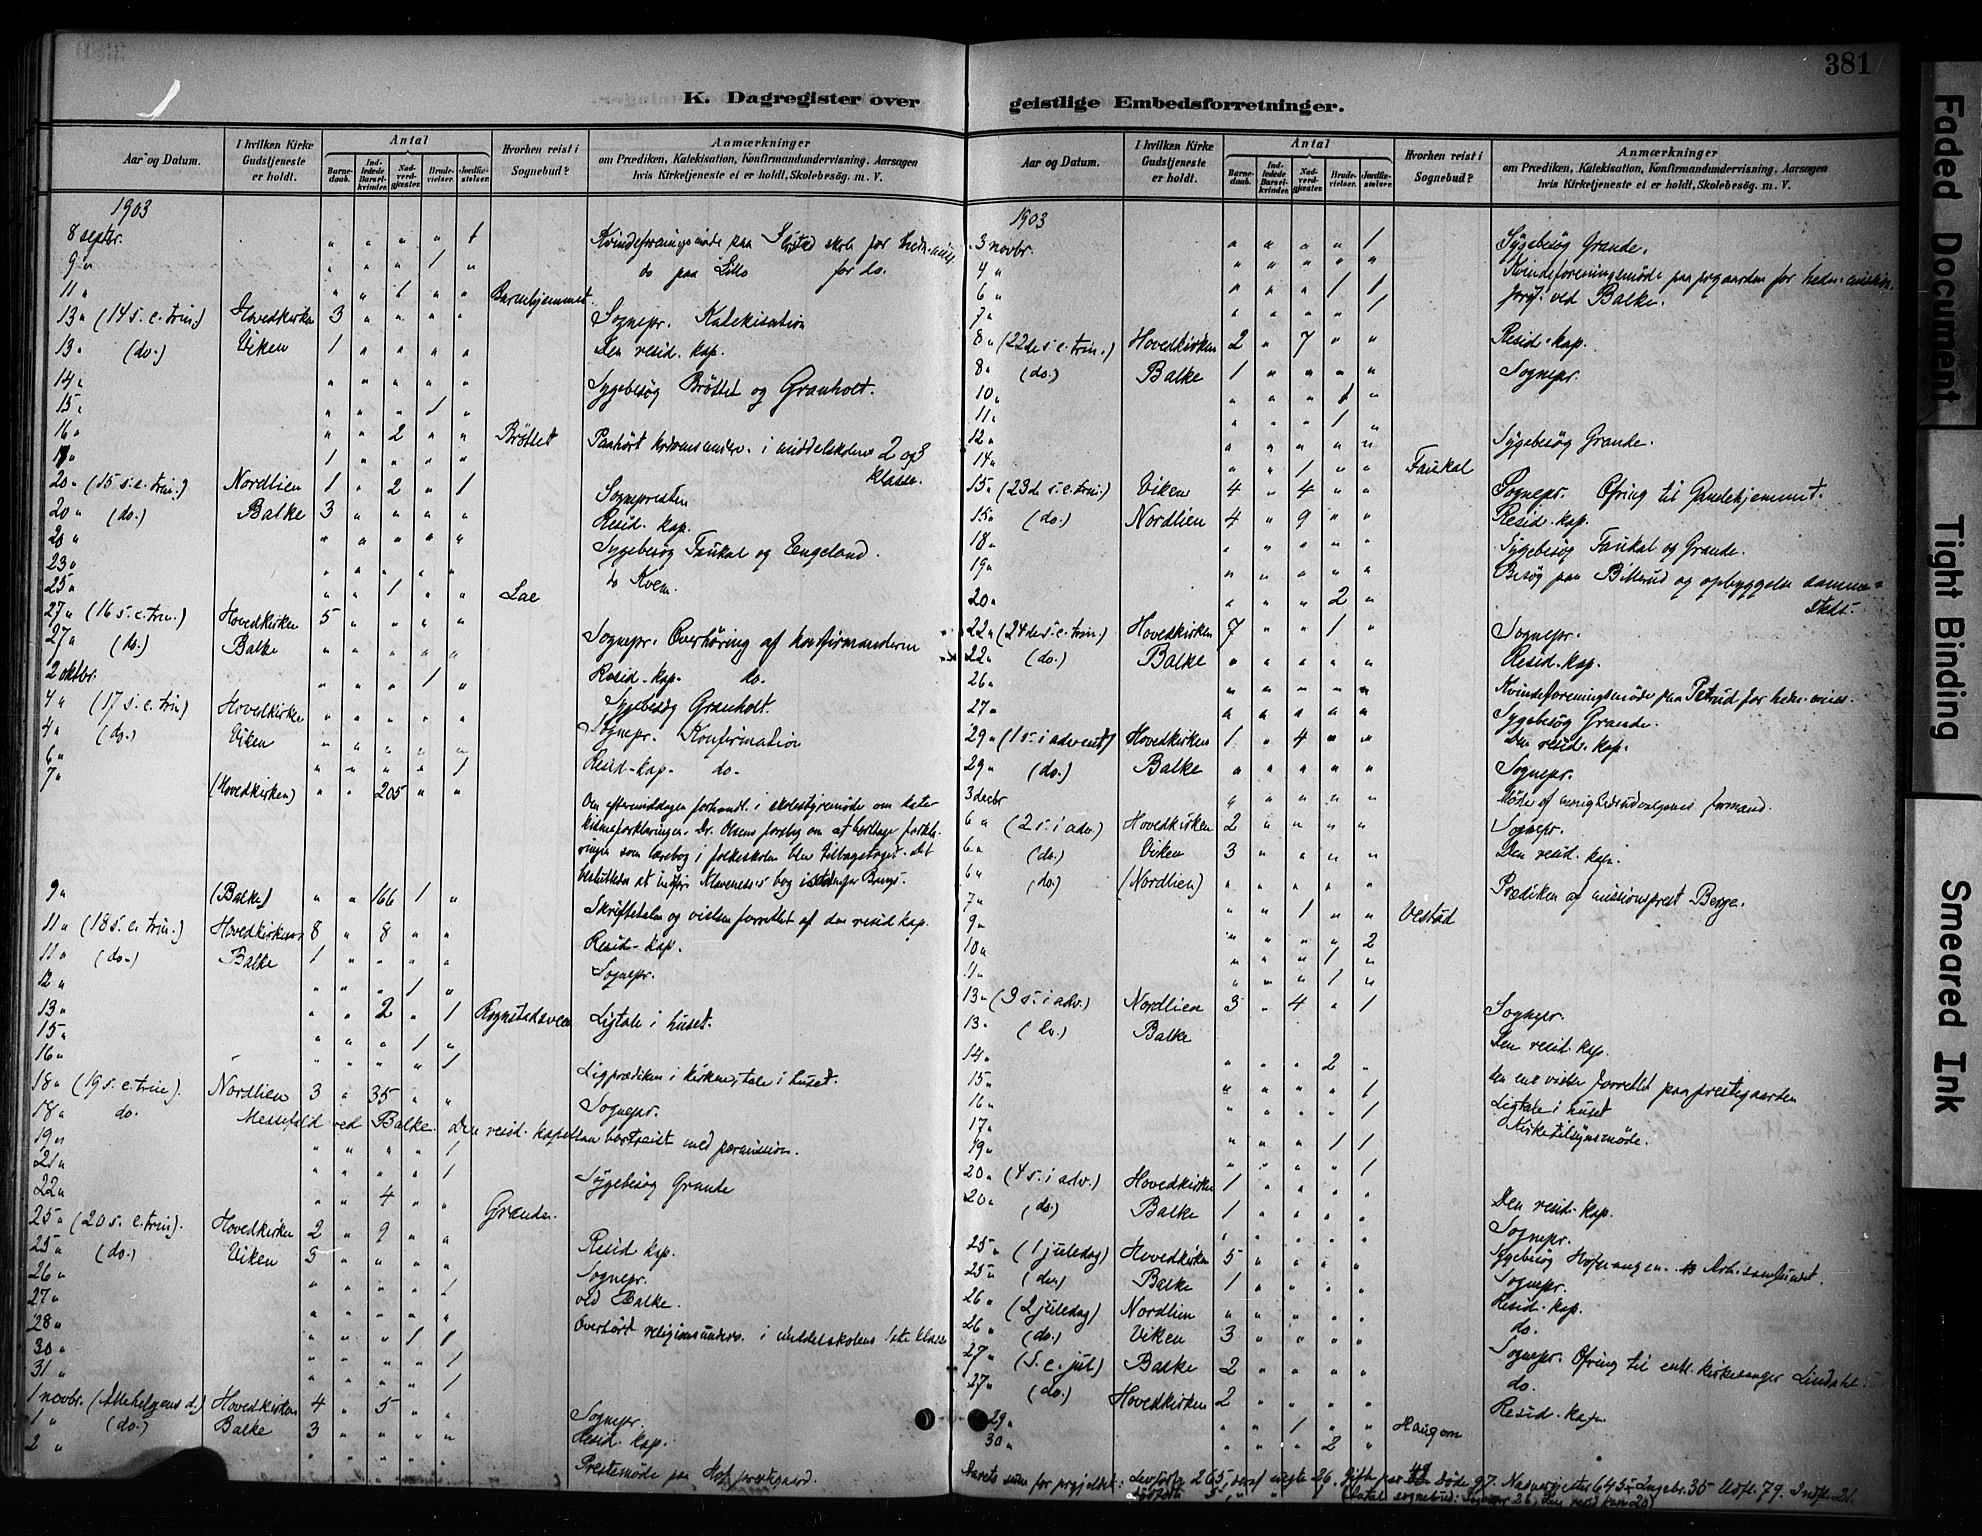 381
K. Dagregister over geistlige Embedsforretninger.
Aar og Datum. I hvilken Kirke Gudstjeneste er holdt. Antal Barnedaab. Indledede Barselkvinder. Nadverdgjester. Brudevielser. Jordfæstelser. Hvorhen reist i Sognebud? Anmærkninger om Prædiken, Katekisation, Konfirmandundervisning, Aarsagen hvis Kirketjeneste ei er holdt, Skolebesøg. m. V.
1903
8 septbr. " " " " 1 Kvindeforeningsmøde paa skole for hedn.-miss.
9 " " " " 1 " do paa Lillo for do.
11 " " " 1 " " Barnehjemmet
13 " (14 s. e. trin.) Hovedkirken 3 " " " " Sognepr. Katekisation
13 " (do.) Viken 1 " " " " Den resid. kap.
14 " " " " " " Sygebesøg Brøttet og Granholt.
15 " " " " 1 "
16 " " " 2 " " Brøttet Paahørt i middelskolens 2 og 3 klasse.
1 " " " "
20 " (15 s. e. trin.) Nordlien 1 " 2 " 1 Sognepresten
20 " (do.) Balke 3 " " " " Resid. kap.
20 " " " " " " Sygebesøg Faukal og Engeland.
23 " " " " " " do Kvem.
25 " " " 1 " " Lae
27 " (16 s. e. trin.) Hovedkirken 5 " " " " Sognepr. Overhøring af konfirmanderne
27 " (do.) Balke " " " " " Resid. kap. do.
2 oktbr. " " " 1 " Sygebesøg Granholt.
4 " (17 s. e. trin) Hovedkirken " " " " " Sognepr. Konfirmation
4 " (do.) Viken " " " " " Resid. kap. do.
6 " " " " " 1
7 " (Hovedkirken) " " 205 " " Om eftermiddagen forhandl. i skolestyremøde om
kismeforklaringen. Dr. Olsens forslag om at
som lærebog i folkeskolen blev tilbagetaget. det
besluttedes at indføre Klaveness's bog istedenfor
9 " (Balke) " " 166 1 " Skriftetalen og vielsen forrettet af den resid kap.
11 " (18 s. e. trin.) Hovedkirken 8 " 8 " " Resid. kap.
11 " (do.) Balke 1 " " " " Sognepr.
12 " " " " 1 "
13 " " " 2 " 1 Rognstadsveen Ligtale i huset.
15 " " " " 1 "
16 " " " " " 1 Ligprædiken i kirken, tale i huset.
18 " (19 s. e. trin). Nordlien 3 " 35 " " Sognepr.
18 " do. Messefald ved Balke. Den resid. kapellan bortreist med permission.
19 " " " " " 1
21 " " " " " 1 Sygebesøg Grande
22 " " " 4 " " Grande.
25 " (20 s. e. trin). Hovedkirken 2 " 9 " " Resid kap.
25 " (do.) Viken 3 " " " " Sognepr.
26 " " " " " 1 ved Balke.
27 " " " " " " Overhørt religionsunderv. i middelskolens 1ste klasse
28 " " " " 1 1
30 " " " " " 1
31 " " " " " 1
1 novbr. (Allehelgens d.) Hovedkirken 4 " 5 " " Sognepr.
1 " (do.) Balke 3 " " " " Resid. kap.
2 " " " " " " Prestemøde paa Hof prestgaard.
1903
3 novbr. " " " " 1 Sygebesøg Grande.
4 " " " " " " Kvindeforeningsmøde paa prgaarden for hedn. mission.
6 " " " " 1 1 Jordf. ved Balke.
7 " " " " " 1
8 " (22de s. e. trin.) Hovedkirken 2 " 7 " " Resid. kap.
8 " (do.) Balke 1 " " " " Sognepr.
10 " " " " 1 "
11 " " " " 1 "
12 " " " " " " Sygebesøg Grande.
14 " " " 1 " " Faukal
15 " (23d. s. e. trin.) Viken 4 " 4 " " Sognepr. Ofring til
15 " (do.) Nordlien 4 " 9 " " Resid. kap.
18 " " " " " " Sygebesøg Faukal og Grande.
19 " " " " " " Besøg paa Bilterud og opbyggelse sammesteds.
20 " " " " 2 "
22 " (24de s. e. trin.) Hovedkirken 7 " " 1 " Sognepr.
22 " (do.) Balke " " " " " Resid. kap.
26 " " " " " " Kvindeforeningsmøde paa Petrud for hedn. miss.
27 " " " " " " Sygebesøg Grande.
29 " (1 s. i advent) Hovedkirken 1 " 4 " " Den resid. kap.
29 " (do.) Balke " " " " " Sognepr.
3 decbr " " " " " Møde af formænd.
6 " (2 s. i adv.) Hovedkirken 2 " " " " Sognepr.
6 " (do.) Viken 3 " " " " Den resid. kap.
6 " (do.) (Nordlien) " " " " " Prædiken af missionsprest Berge.
7 " " " 1 " " Vestad
9 " " " " " 2
10 " " " " 1 "
11 " " " " 1 "
13 " (3 s. i adv.) Nordlien 3 " 4 " 1 Sognepr.
13 " (do.) Balke Den resid. kap.
14 " " " " 2 " den ene vielse forrettet paa prestegaarden
15 " " " " " 1 Ligtale i huset
16 " " " " " 1 Kirketilsynsmøde.
17 " " " " 1 1
19 " " " " " 1
20 " (4 s. i adv.) Hovedkirken 1 " " " " Den resid. kap.
20 " (do.) Balke 1 " " " " Sognepr.
Sygebesøg
25 " (1 juledag) Hovedkirken 5 " " " " Sognepr.
25 " (do.) Balke 1 " " " " Resid. kap.
26 " (2 juledag) Nordlien " " " " " do.
26 " (do.) Viken 3 " " " " Sognepr. Ofring til kirkesanger Lindahl.
27 " (S. e. jul) Balke 2 " " " " do.
27 " (do.) Hovedkirken 2 Resid. kap.
29 " " " 1 " " Haugom
30 " " " " 2 "
Aarets sum for prgjeldet: Levfødte 265, deraf uegte 26. Gifte par 49 Døde 97. Nadvergjester 645. 35 Udfl. 79. Indfl. 21.
dødfødte 5 " " (Antal sognebud: Sognepr 26, Den resid kap 20)
Faded Document
Tight Binding
Smeared Ink